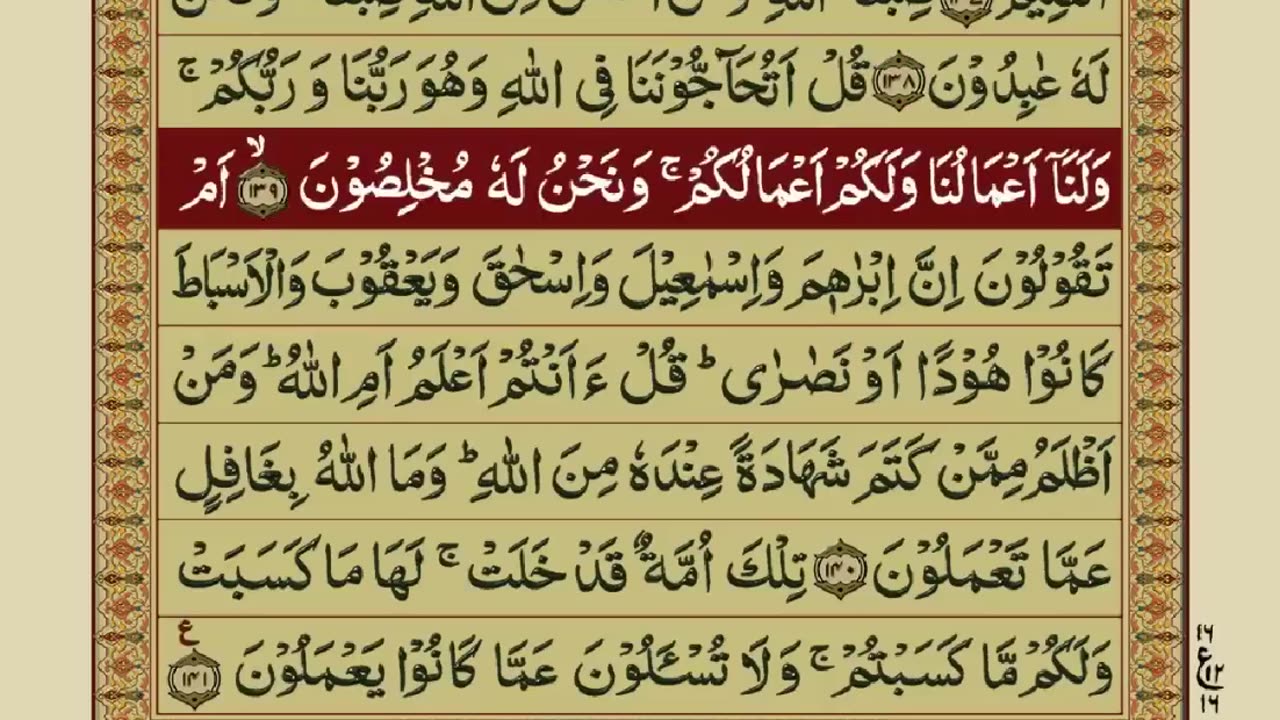 لَهٗ عٰبِدُوْنَ ﴿۱۳۸﴾ قُلْ اَتُحَآجُّوْنَنَا فِی اللّٰهِ وَهُوَ رَبُّنَا وَ رَبُّكُمْ ۚ
وَلَنَاۤ اَعْمَالُنَا وَلَكُمْ اَعْمَالُكُمْ ۚ وَ نَحْنُ لَهٗ مُخْلِصُوْنَ ﴿۱۳۹﴾ۙ اَمْ
تَقُوْلُوْنَ اِنَّ اِبْرٰهٖمَ وَاِسْمٰعِیْلَ وَاِسْحٰقَ وَیَعْقُوْبَ وَالْاَسْبَاطَ
كَانُوْا هُوْدًا اَوْ نَصٰرٰی ؕ قُلْ ءَاَنْتُمْ اَعْلَمُ اَمِ اللّٰهُ ؕ وَمَنْ
اَظْلَمُ مِمَّنْ كَتَمَ شَهَادَةً عِنْدَهٗ مِنَ اللّٰهِ ؕ وَمَا اللّٰهُ بِغَافِلٍ
عَمَّا تَعْمَلُوْنَ ﴿۱۴۰﴾ تِلْكَ اُمَّةٌ قَدْ خَلَتْ ۚ لَهَا مَا كَسَبَتْ
وَلَكُمْ مَّا كَسَبْتُمْ ۚ وَلَا تُسْـَٔلُوْنَ عَمَّا كَانُوْا یَعْمَلُوْنَ ﴿۱۴۱﴾ ع
۱۶
ع ۱۲
۱۶